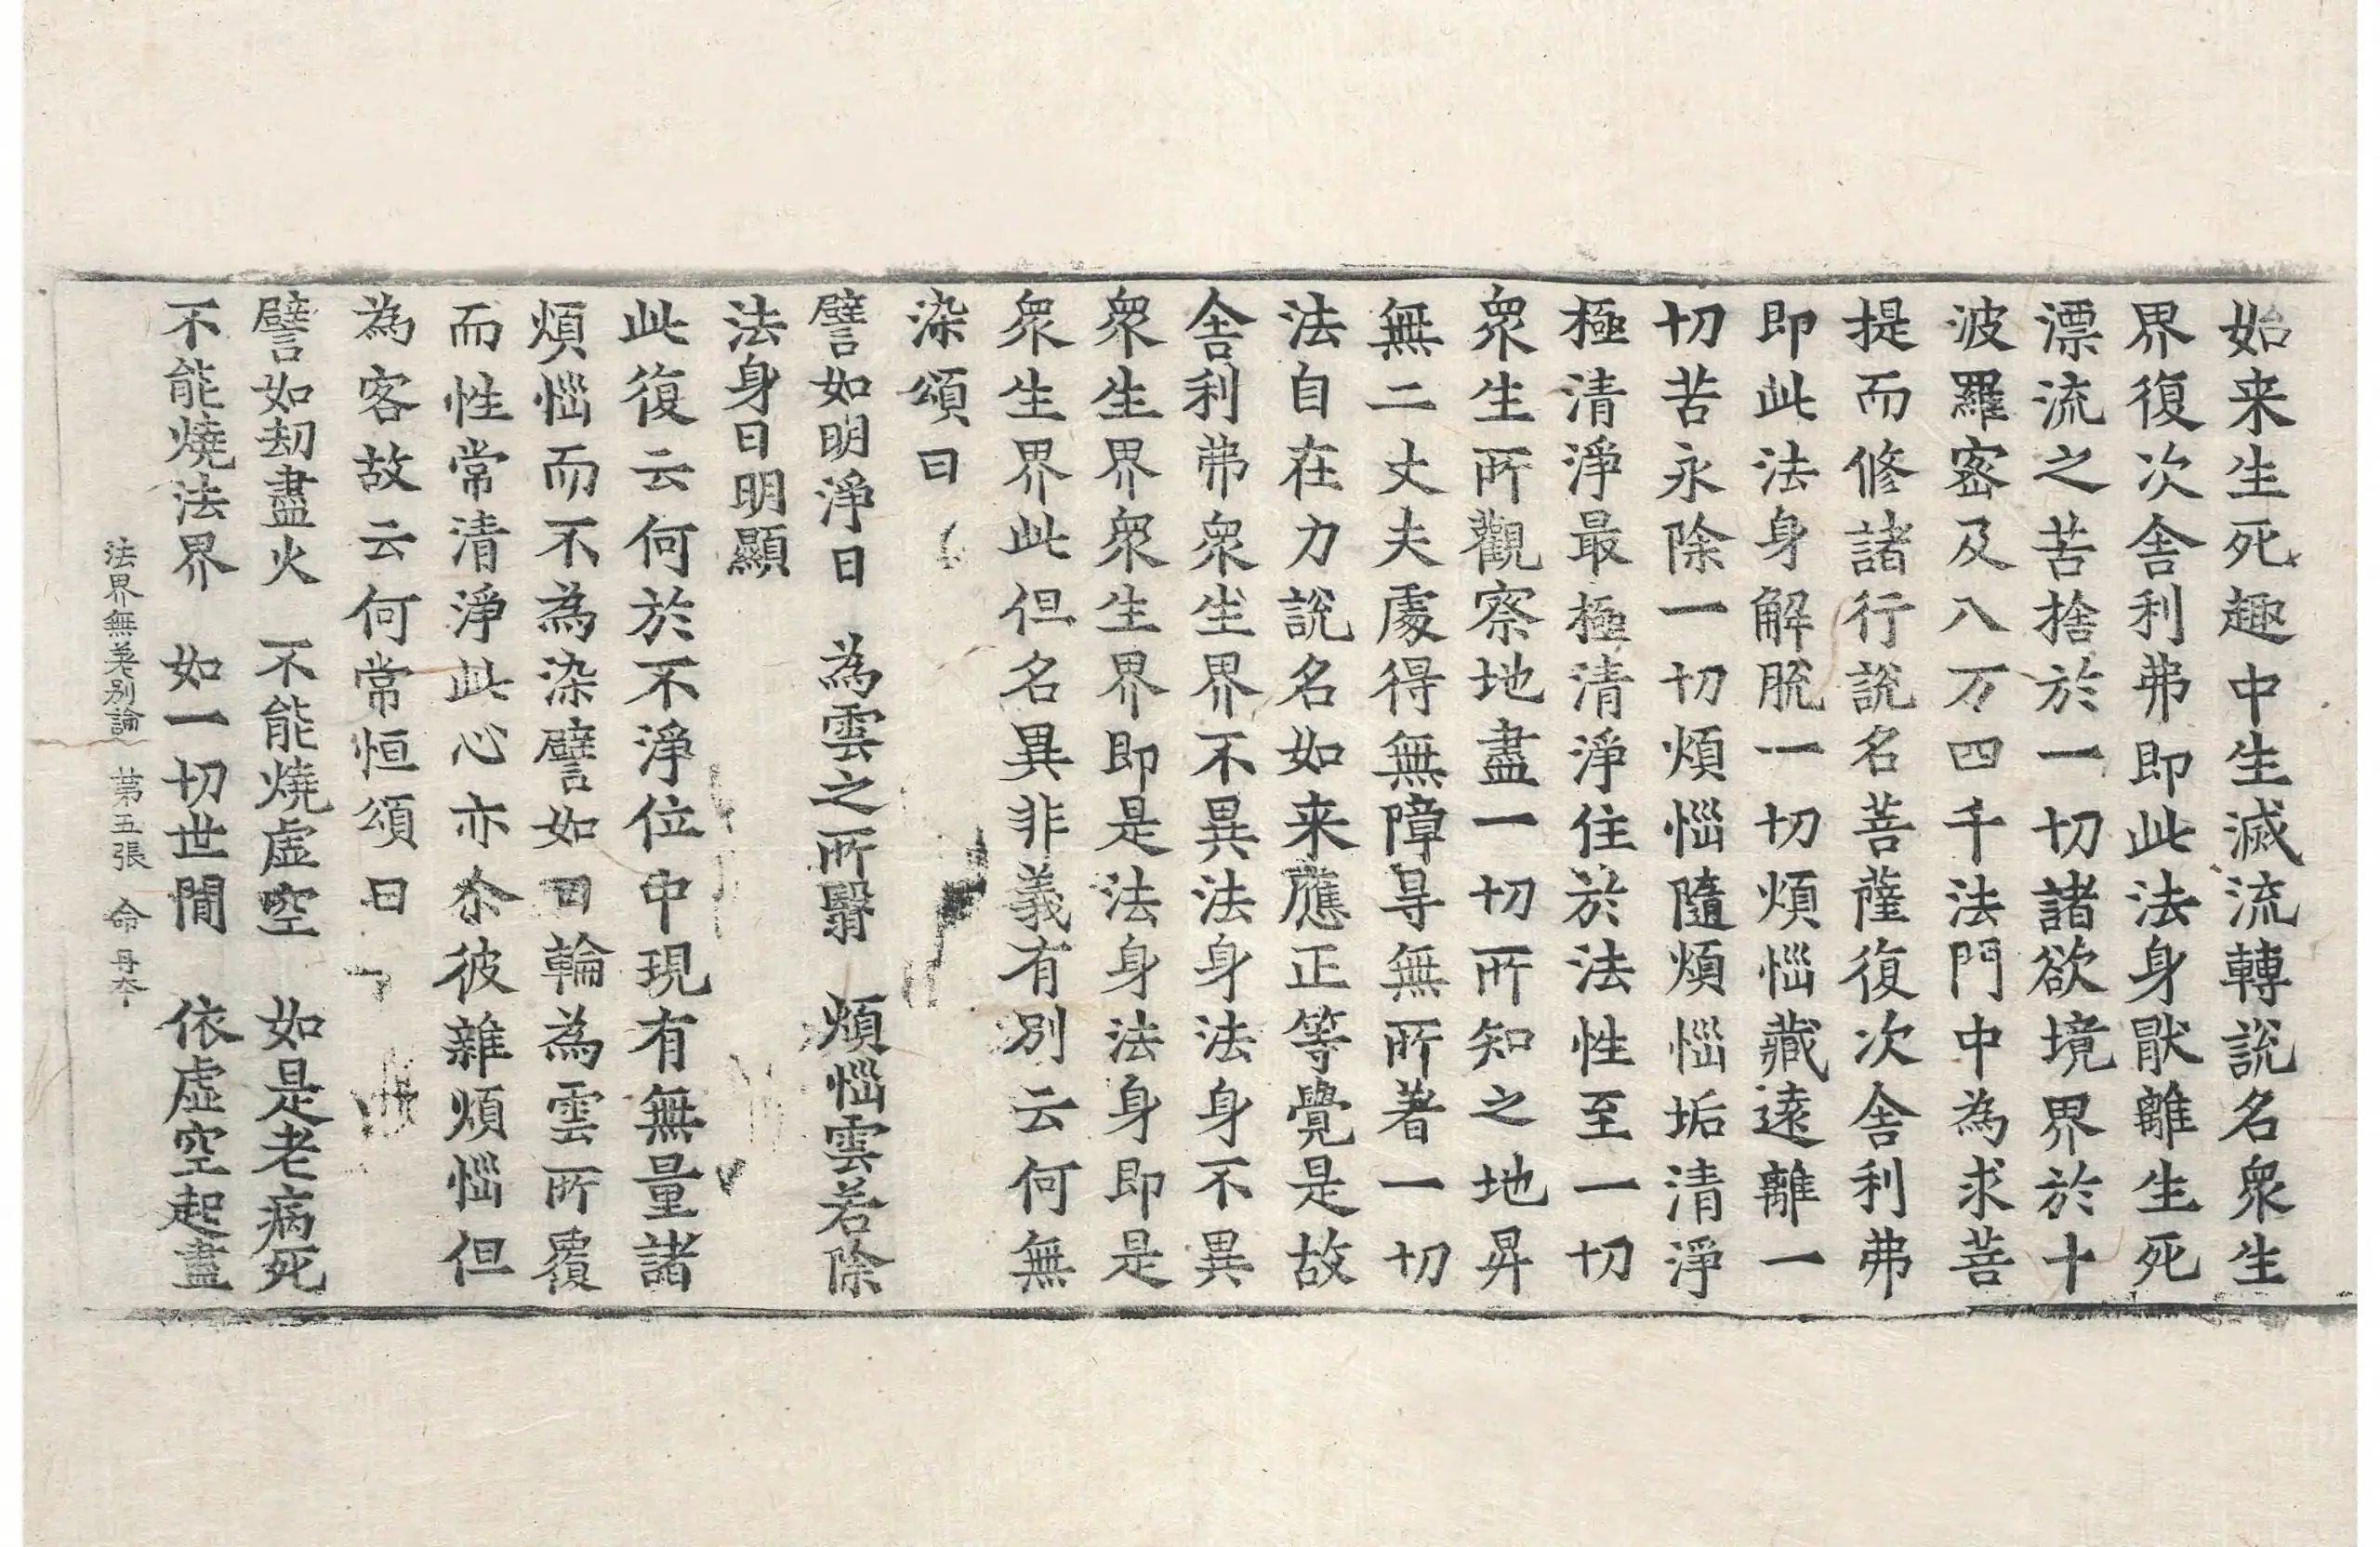 始来生死趣中生滅流轉說名衆生
界復次舍利弗即此法身猒離生死
漂流之苦捨於一切諸欲境界於十
波羅宻及八万四千法門中為求菩
提而修諸行說名菩薩復次舍利弗
即此法身解脫一切煩惱藏遠離一
切苦永除一切煩惱隨煩惱垢清淨
極清淨最極清淨住於法性至一切
衆生所觀察地盡一切所知之地昇
無二丈夫處得無障㝵無所著一切
法自在力說名如来應正等覺是故
舍利弗衆生界不異法身法身不異
衆生界衆生界即是法身法身即是
衆生界此但名異非義有別云何無
染頌曰
譬如明淨日　為雲之所翳　煩惱雲若除
法身日明顯
此復云何於不淨位中現有無量諸
煩惱而不為染譬如日輪為雲所覆
而性常清淨此心亦尒彼雜煩惱但
為客故云何常恒頌曰
譬如劫盡火　不能燒虛空　如是老病死
不能燒法界　如一切世間　依虛空起盡
法界無差別論　第五張　命　丹本